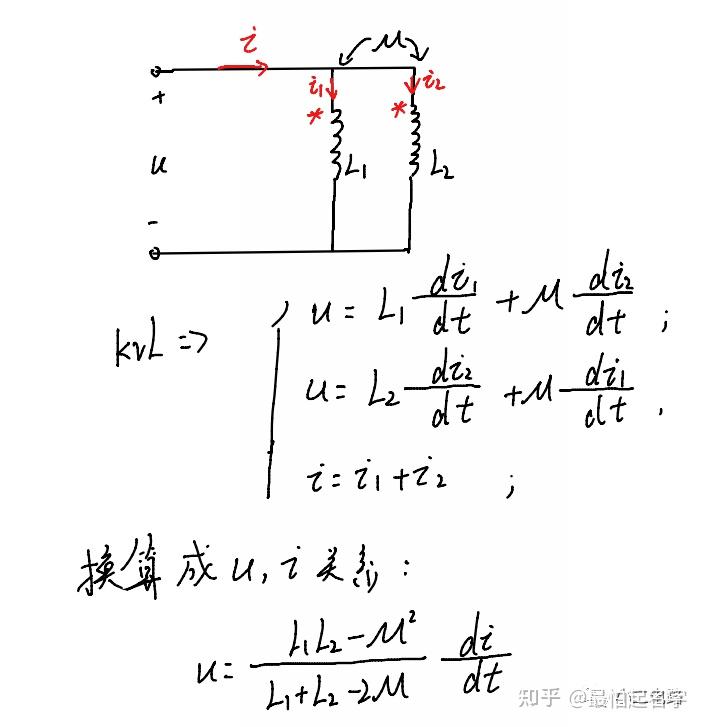 i M
i₁ i₂
+ * *
u L₁ L₂
-
KVL => u = L₁ di₁/dt + M di₂/dt ;
u = L₂ di₂/dt + M di₁/dt .
i = i₁ + i₂ ;
换算成 u, i 关系:
u = (L₁L₂ - M²)/(L₁ + L₂ - 2M) di/dt
知乎 @最怕起名字